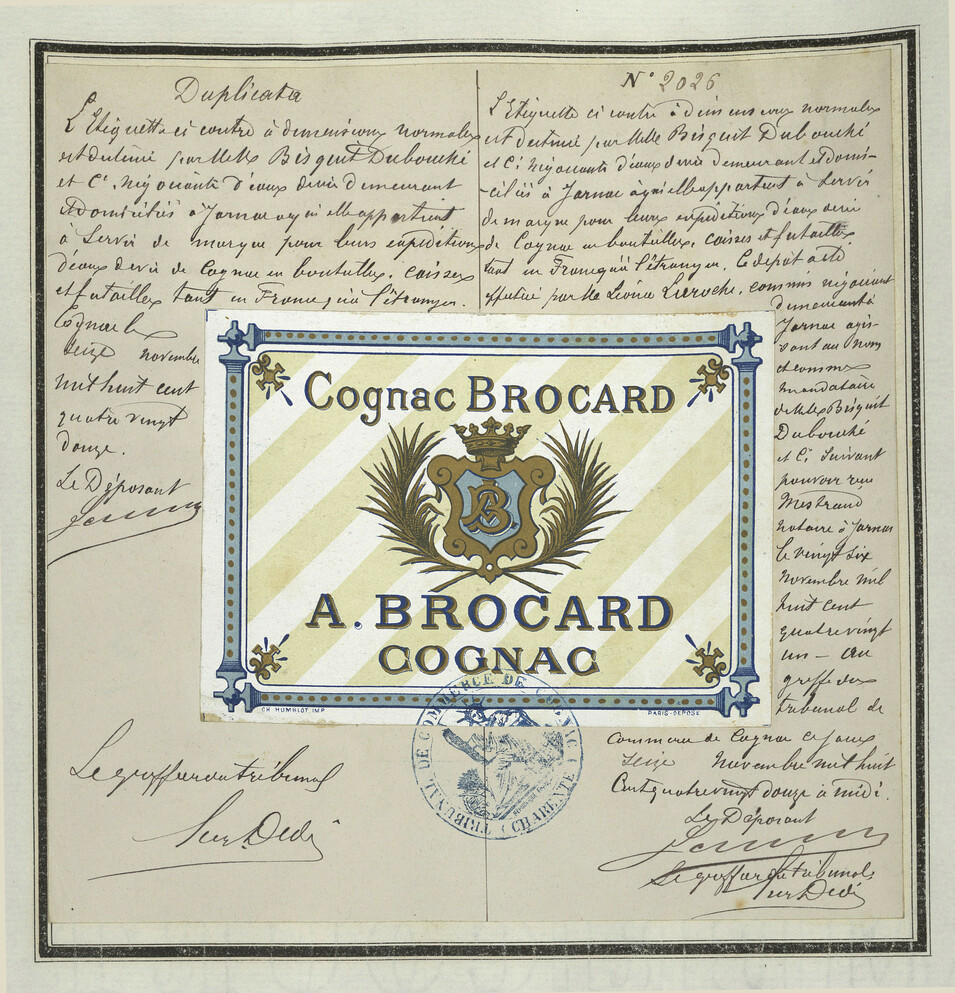 Duplicata
L'Etiquette ci contre à dimensions normales
est destinée par MM Bisquit Dubouché
et Cie négociants d'eaux de vie demeurant
et domiciliés à Jarnac à qui elle appartient
à Servir de marque pour leurs expéditions
d'eaux de vie de Cognac en bouteilles, caisses
et futailles tant en France qu'à l'étranger.
Cognac le
seize novembre
mil huit cent
quatre vingt
douze.
Le Déposant
Le greffier du tribunal
N° 2026
L'Etiquette ci contre à dimensions normales
est destinée par MM Bisquit Dubouché
et Cie négociants d'eaux de vie demeurant et domi-
-ciliés à Jarnac à qui elle appartient à Servir
de marque pour leurs expéditions d'eaux de vie
de Cognac en bouteilles, caisses et futailles
tant en France qu'à l'étranger. Ce dépot a été
effectué par Mr Léonce Laroche, commis négociant
demeurant à
Jarnac agis-
sant au nom
et comme
mandataire
de MM Bisquit
Dubouché
et Cie Suivant
pouvoir reçu
Mestraud
notaire à Jarnac
le vingt six
novembre mil
huit cent
quatre vingt
un — au
greffe du
tribunal de
Commerce de Cognac ce jour
seize Novembre mil huit
Cent quatre vingt douze à midi.
Le Déposant
Le greffier du tribunal
Cognac BROCARD
AB
A. BROCARD
COGNAC
CH HUMBLOT IMP
PARIS-DEPOSÉ
TRIBUNAL DE COMMERCE DE COGNAC (CHARENTE)